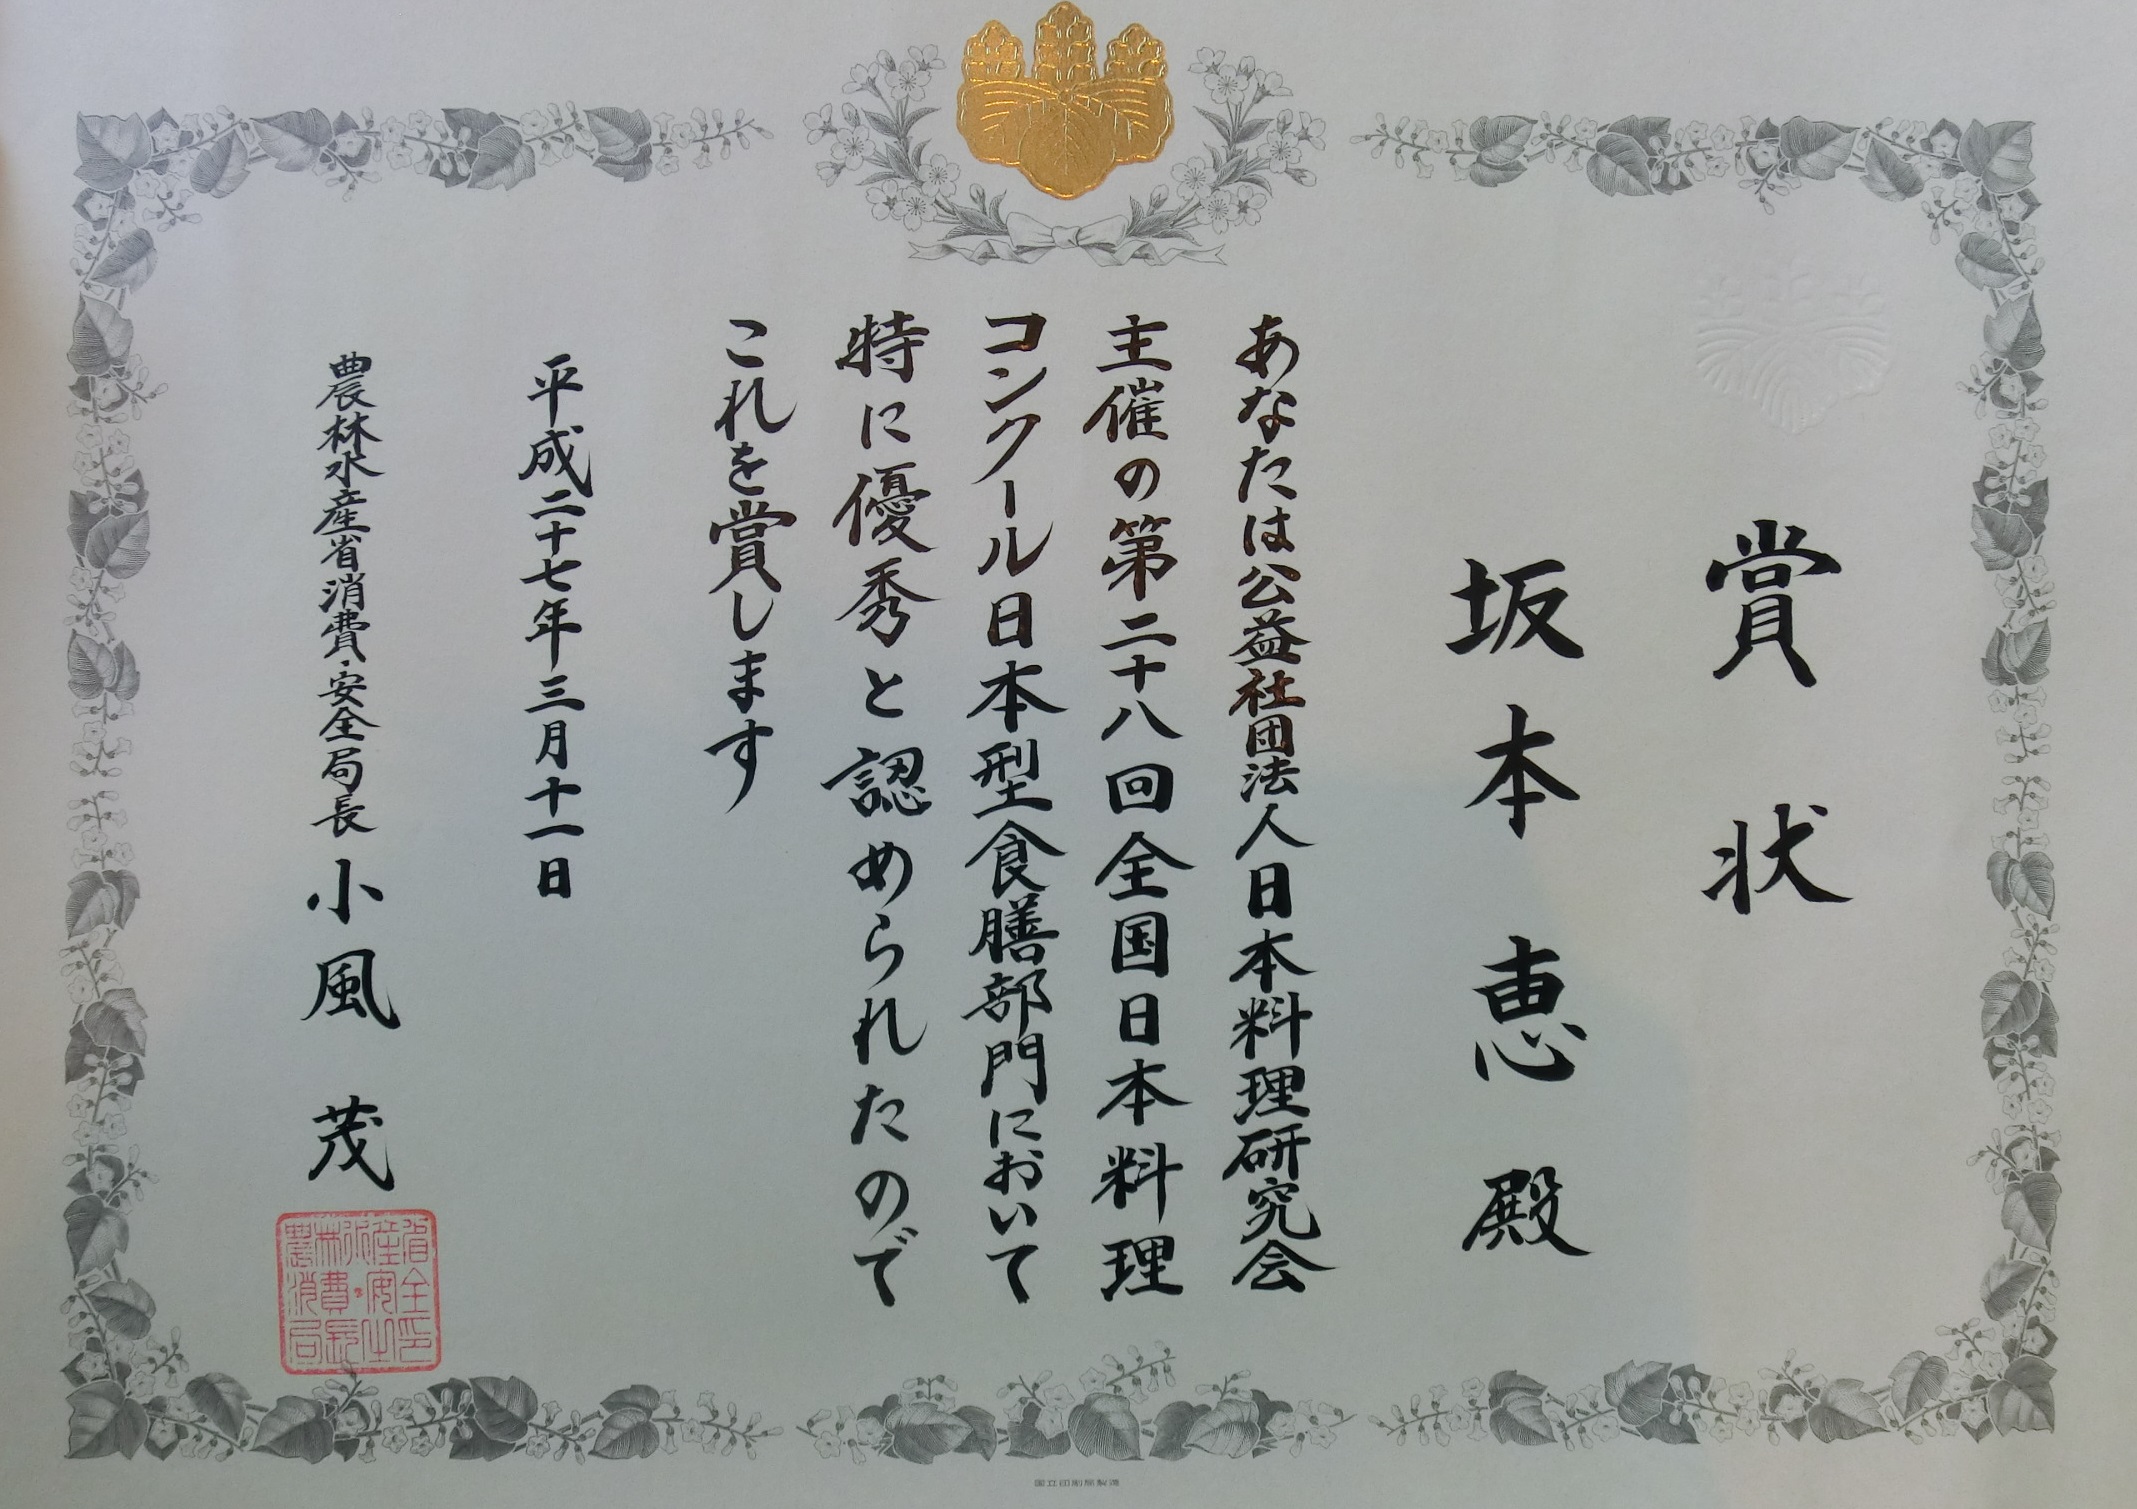 賞状
坂本恵殿
あなたは公益社団法人日本料理研究会
主催の第二十八回全国日本料理
コンクール日本型食膳部門において
特に優秀と認められたので
これを賞します
平成二十七年三月十一日
農林水産省消費・安全局長 小風茂
農林水産省消費・安全局長之印
国立印刷局製造